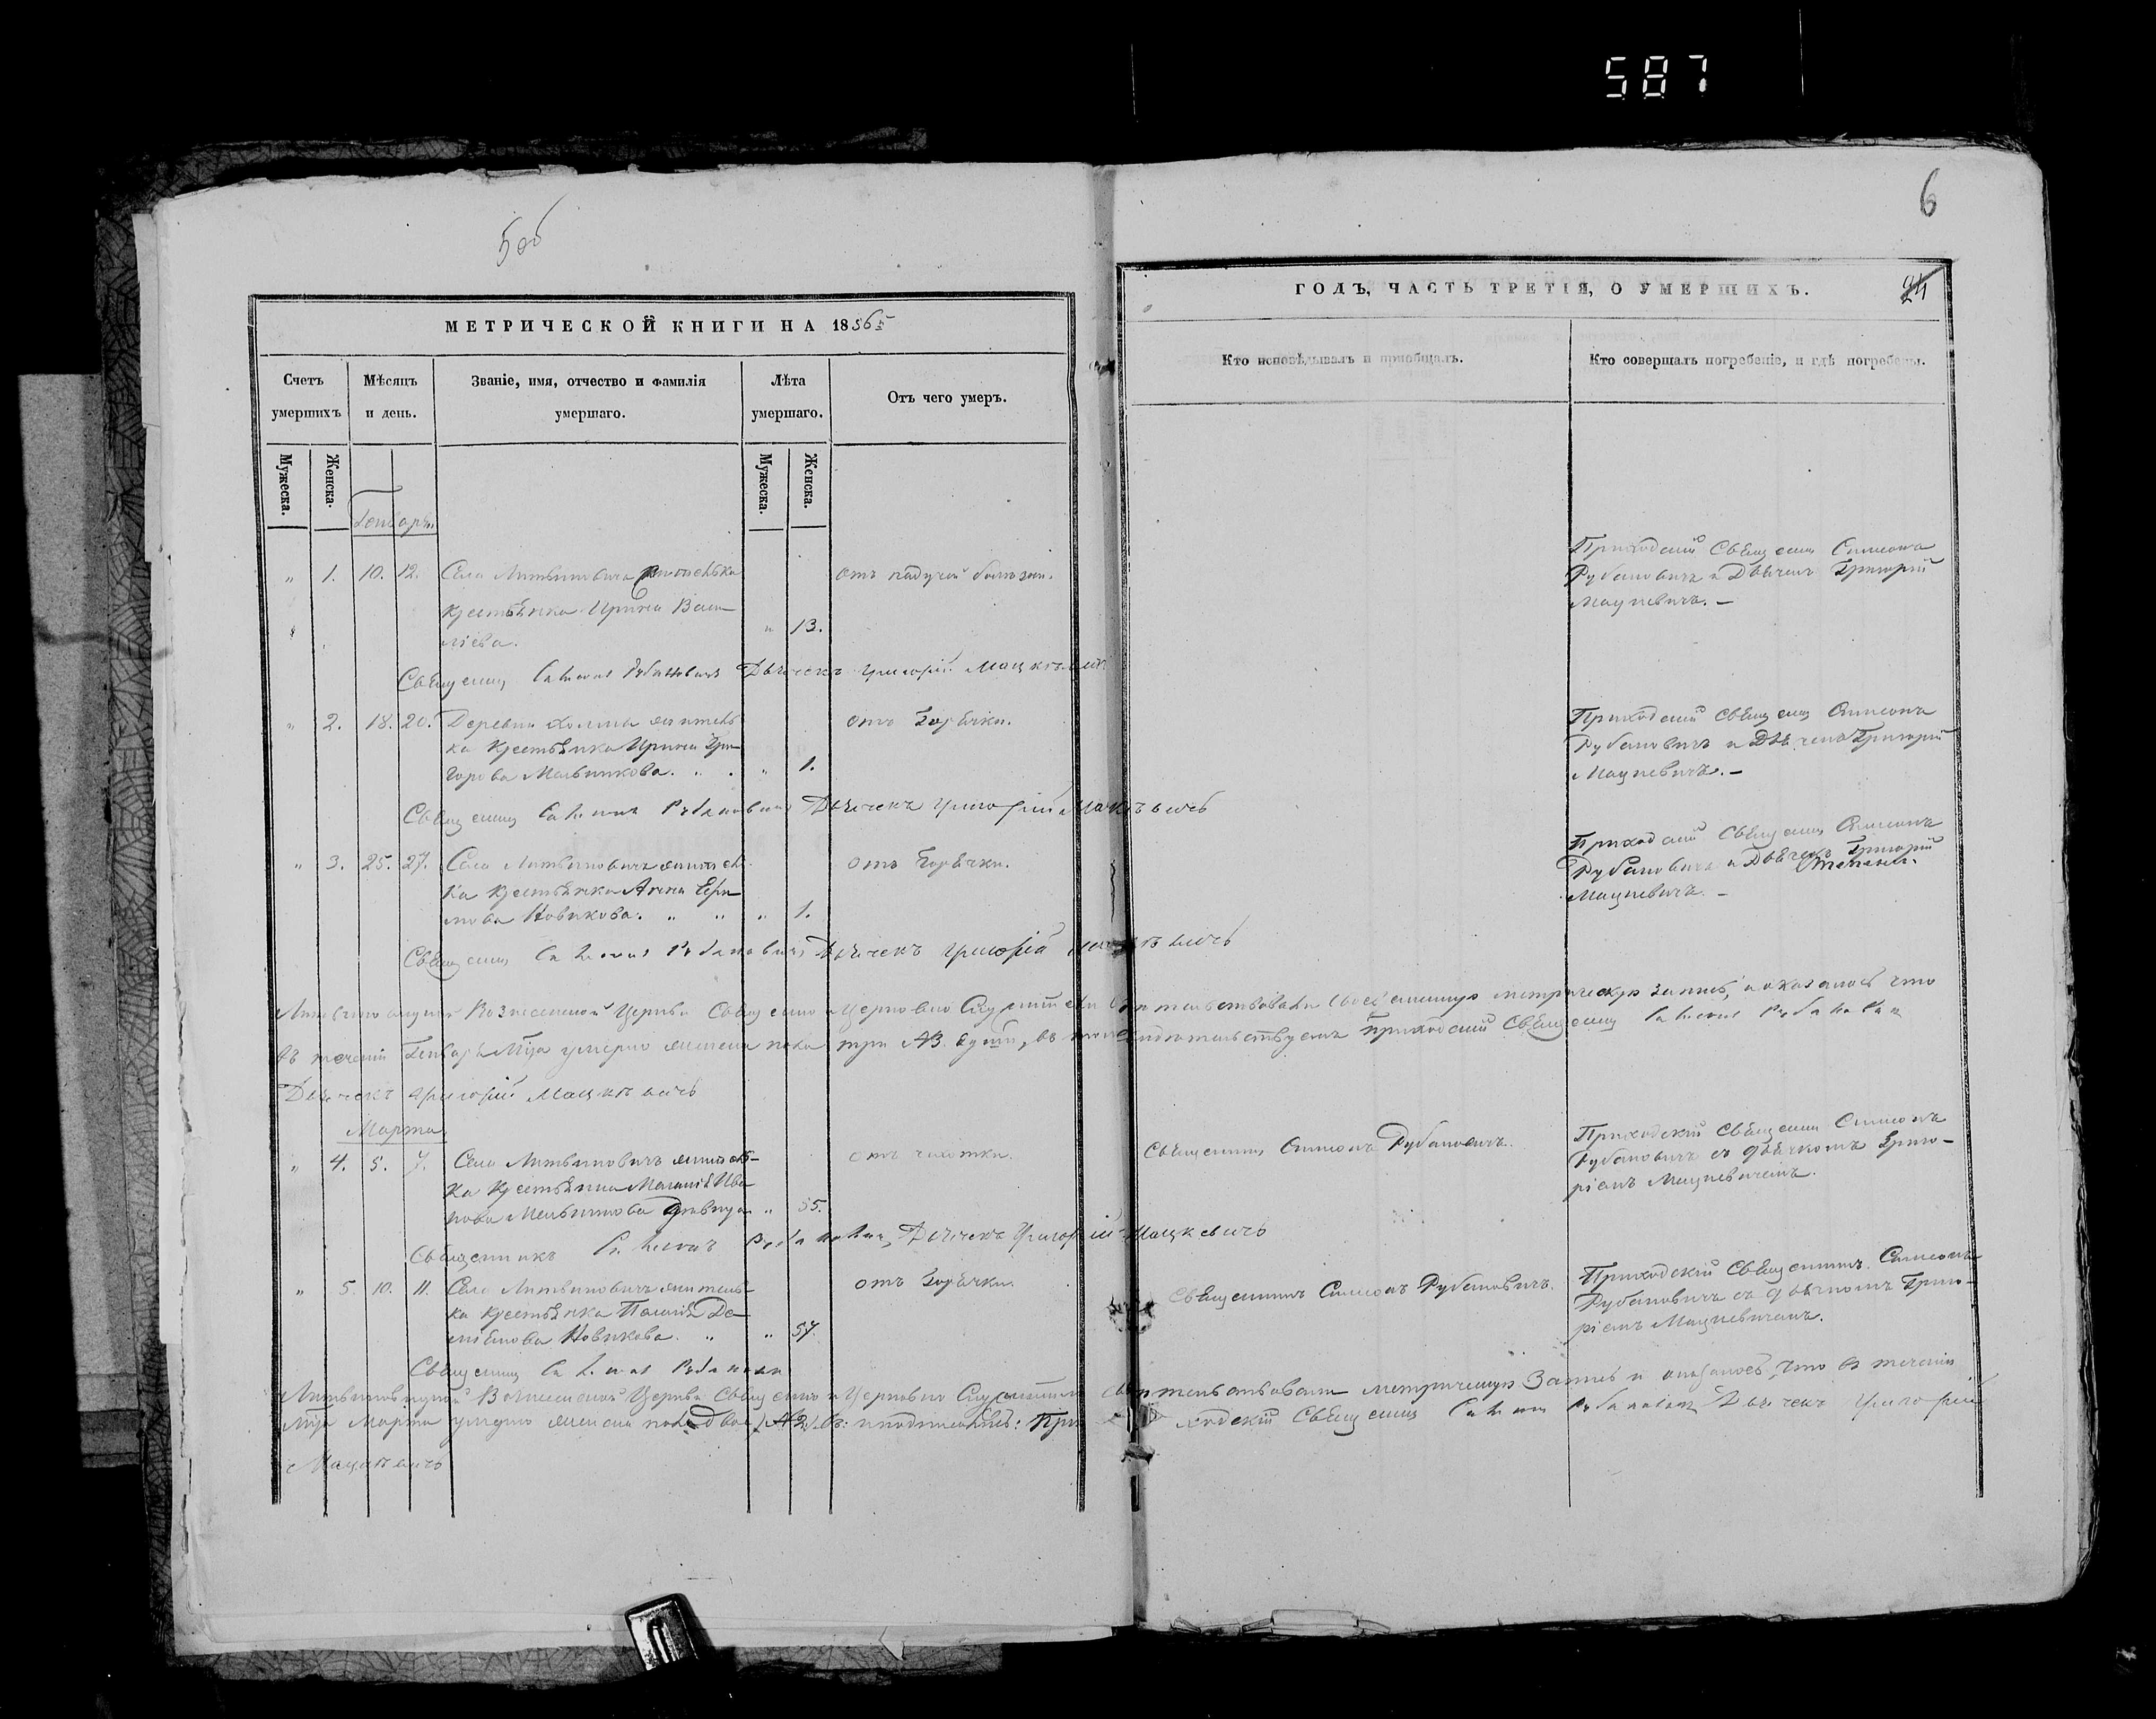 587
5об
6
МЕТРИЧЕСКОЙ КНИГИ НА 1865
ГОДЪ, ЧАСТЬ ТРЕТІЯ, О УМЕРШИХЪ.
24
Счетъ умершихъ
Мѣсяцъ и день.
Званіе, имя, отчество и фамилія умершаго.
Лѣта умершаго.
Отъ чего умеръ.
Кто исповѣдывалъ и пріобщалъ.
Кто совершалъ погребеніе, и гдѣ погребены.
Мужеска.
Женска.
Мужеска.
Женска.
Генварь
" 1. 10. 12. Села Литвиновичъ жителька
крестьянка Ирина Васи-
ліева. " 13.
отъ падучей болѣзни.
Приходскій Священникъ Симеонъ
Рубановичъ и Дьячекъ Григорій
Мацкевичъ. –
Священникъ Симеонъ Рубановичъ Дьячекъ Григорій Мацкевичъ
" 2. 18. 20. Деревни Холмы жительь-
ка крестьянка Ирина Гри-
горова Мельникова. " . " 1.
отъ Горячки.
Приходскій Священникъ Симеонъ
Рубановичъ и Дьячекъ Григорій
Мацкевичъ. –
Священникъ Симеонъ Рубановичъ Дьячекъ Григорій Мацкевичъ
" 3. 25. 27. Села Литвиновичъ житель-
ка крестьянка Анна
Новикова. " " " 1.
отъ Горячки.
Приходскій Священникъ Симеонъ
Рубановичъ и Дьячекъ Григорій
Мацкевичъ. –
Священникъ Симеонъ Рубановичъ Дьячекъ Григорій Мацкевичъ
Церкви Священно и Церковно Служители метрическую запись, и оказалось что
въ теченіи Генваря Мца умерло женска пола три приходскій Священникъ Симеонъ Рубановичъ
Дьячекъ Григорій Мацкевичъ
Марта
" 4. 5. 7. Села Литвиновичъ житель-
ка крестьянка Маланія Ива-
нова Мельникова вдовица " 55.
отъ чахотки.
Священникъ Симеонъ Рубановичъ.
Приходскій Священникъ Симеонъ
Рубановичъ съ дьячкомъ Григо-
ріемъ Мацкевичемъ.
Священникъ Симеонъ Рубановичъ, Дьячекъ Григорій Мацкевичъ
" 5. 10. 11. Села Литвиновичъ житель-
ка крестьянка Де-
Новикова. " " 57.
отъ Горячки.
Священникъ Симеонъ Рубановичъ.
Приходскій Священникъ Симеонъ
Рубановичъ съ дьячкомъ Григо-
ріемъ Мацкевичемъ.
Священникъ Симеонъ Рубановичъ
Церкви Священно и Церковно Служители метрическую Запись и оказалось, что въ теченіи
Мца Марта умерло женска пола двое При ходскій Священникъ Симеонъ Рубановичъ Дьячекъ Григорій
Мацкевичъ